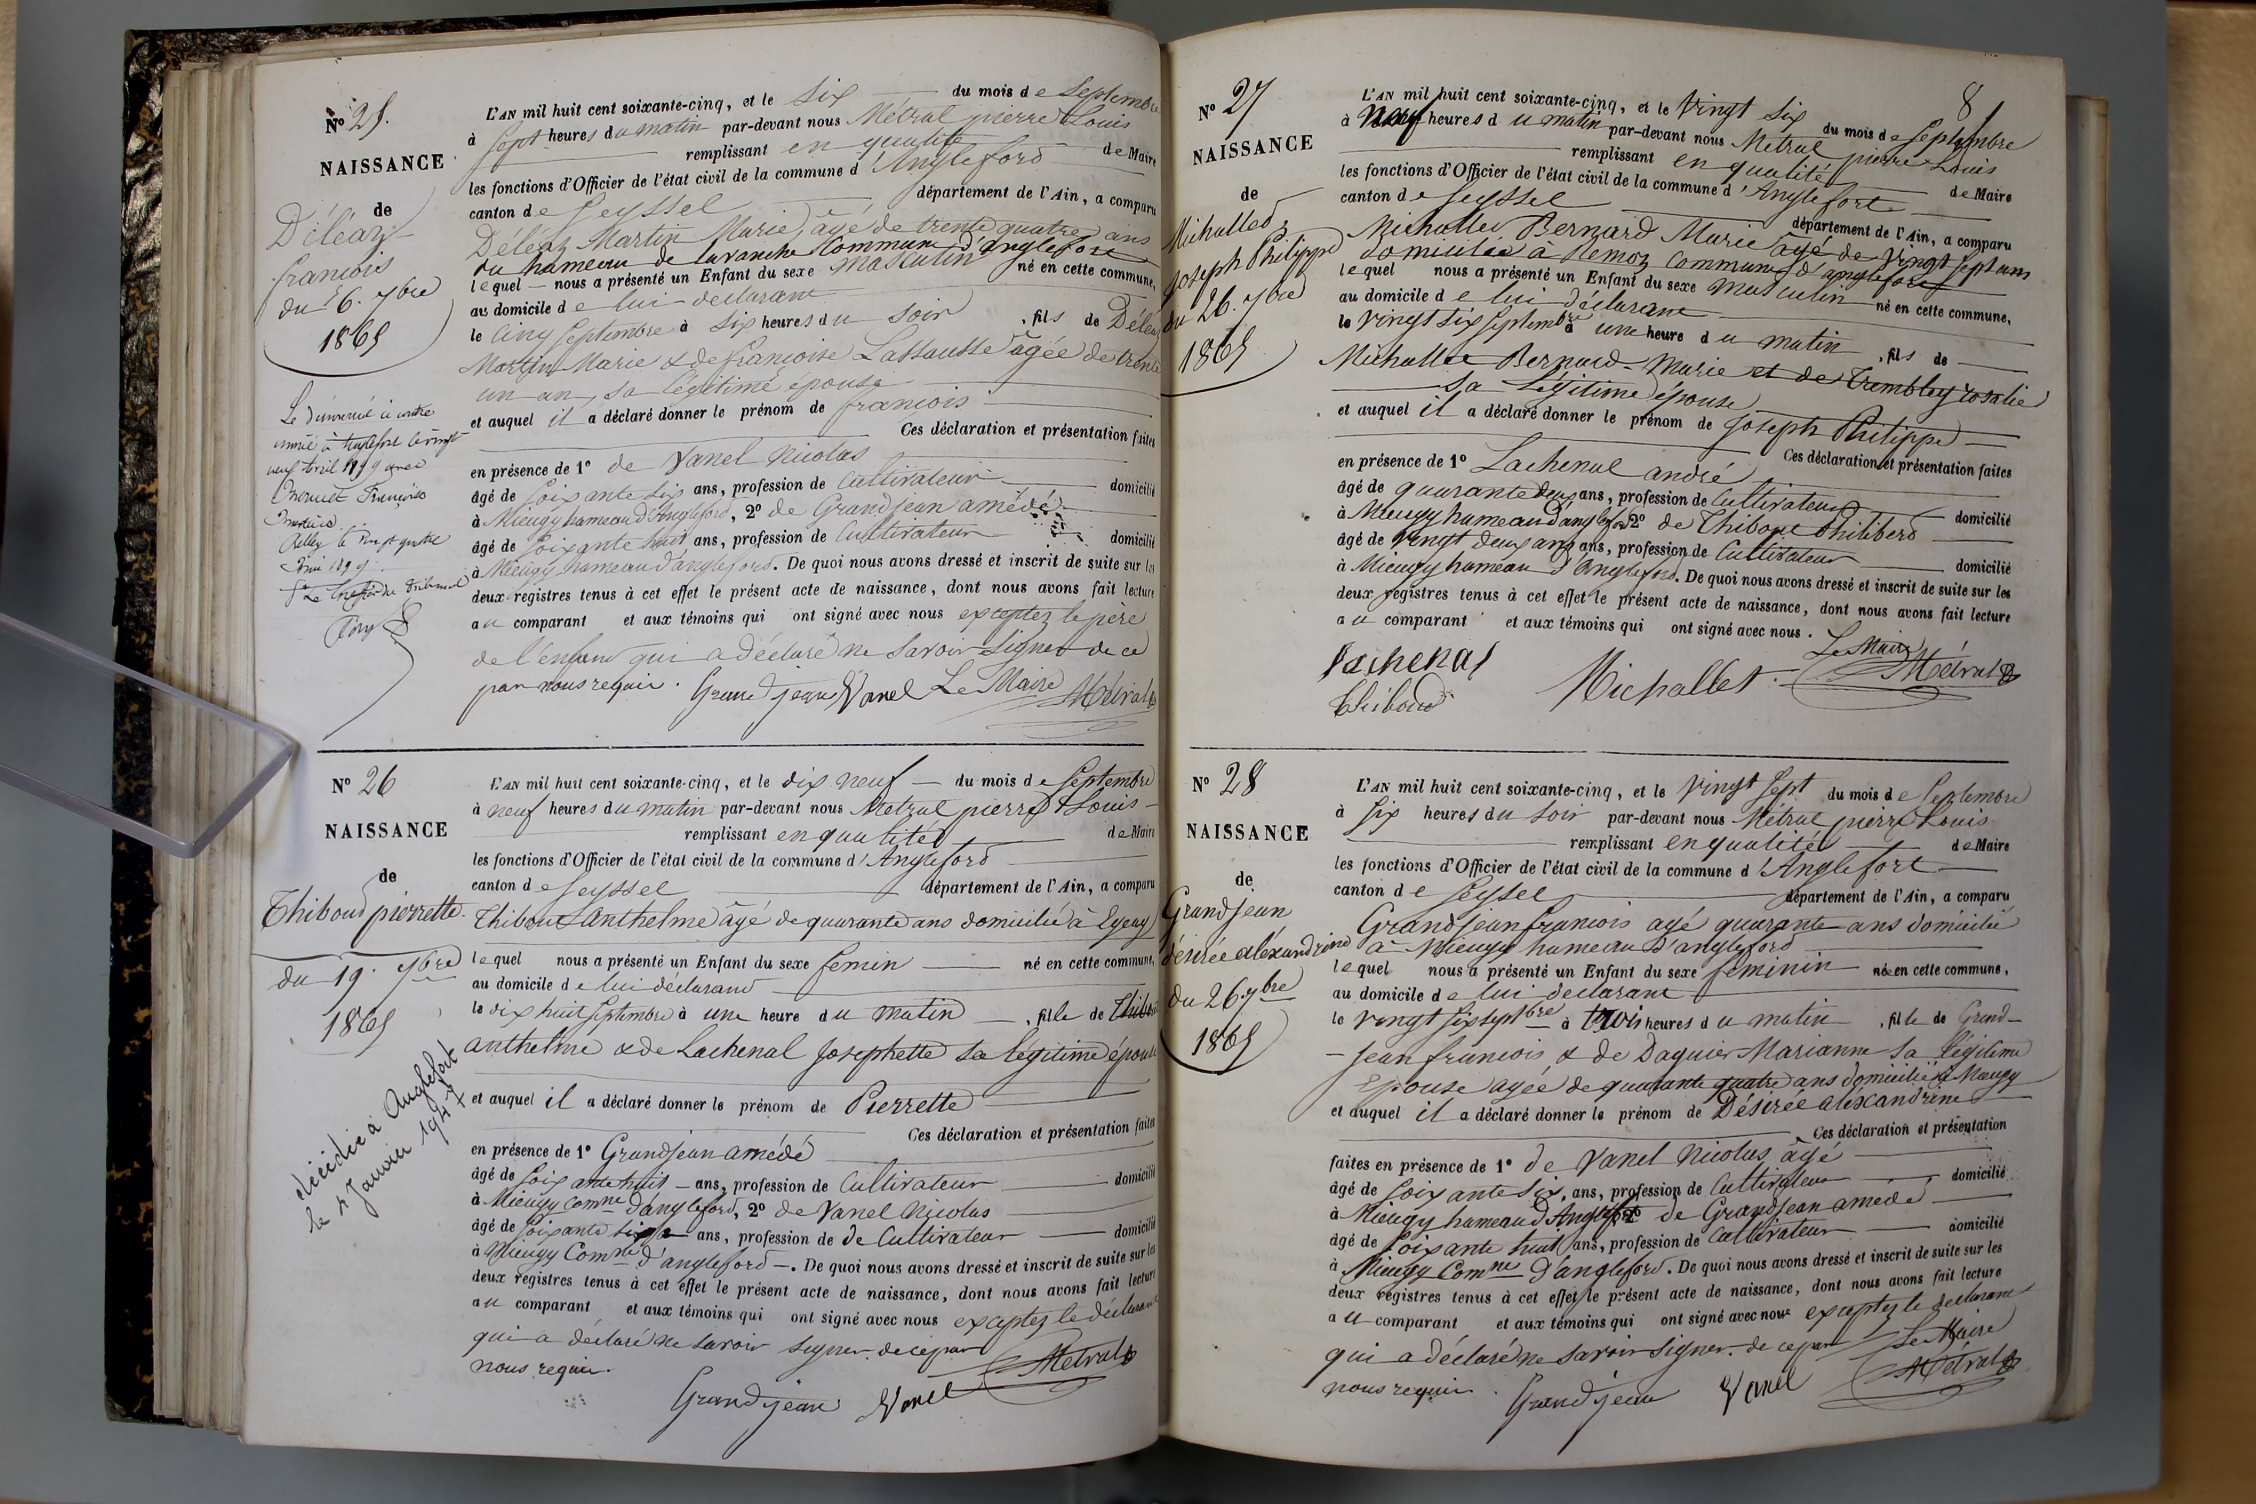 N° 25.
NAISSANCE
de
Déléaz
francois
du 6. 7bre
1865
Le dénommé ci contre
marié à Anglefort le vingt
neuf Avril 1899 avec
Françoise
Belley le vingt quatre
1899
Le Greffier du Tribunal
L'AN mil huit cent soixante-cinq, et le Six du mois de Septembre
à Sept heures du matin par-devant nous Métral pierre Louis
remplissant en qualité de Maire
les fonctions d'Officier de l'état civil de la commune d'Angleford
canton de Seyssel département de l'Ain, a comparu
Déléaz Martin Marie âgé de trente quatre ans
du hameau de lavanche Commune d'anglefort
lequel nous a présenté un Enfant du sexe masculin né en cette commune,
au domicile de lui declarant
le Cinq Septembre à Six heures du Soir, fils de Déléaz
Martin Marie & de francoise Lassausse âgée de trente
un an, sa légitime épouse
et auquel il a déclaré donner le prénom de francois
Ces déclaration et présentation faites
en présence de 1° de Vanel Nicolas
âgé de Soixante Six ans, profession de Cultivateur domicilié
à Mieugy hameau d'Angleford, 2° de Grandjean amédé
âgé de Soixante huit ans, profession de Cultivateur domicilié
à Mieugy hameau d'angleford. De quoi nous avons dressé et inscrit de suite sur les
deux registres tenus à cet effet le présent acte de naissance, dont nous avons fait lecture
au comparant et aux témoins qui ont signé avec nous exceptez le père
de l'enfant qui a déclaré ne Savoir Signer de ce
par nous requis. Grand jean Vanel Le Maire Métral
N° 26
NAISSANCE
de
Thiboud pierrette.
du 19. 7bre
1865
décédée à Anglefort
le 4 Janvier 1947
L'AN mil huit cent soixante-cinq, et le dix neuf du mois de Septembre
à neuf heures du matin par-devant nous Métral pierre Louis
remplissant en qualité de Maire
les fonctions d'Officier de l'état civil de la commune d'Angleford
canton de Seyssel département de l'Ain, a comparu
Thibout Anthelme âgé de quarante ans domicilié à
lequel nous a présenté un Enfant du sexe femin né en cette commune,
au domicile de lui déclarand
le dix huit Septembre à une heure du matin, fille de Thiboud
anthelme & de Lachenal Josephette Sa légitime épouse
et auquel il a déclaré donner le prénom de Pierrette
Ces déclaration et présentation faites
en présence de 1° Grandjean amédé
âgé de Soixante huit ans, profession de Cultivateur domicilié
à Mieugy Comne d'angleford, 2° de Vanel Nicolas
âgé de Soixante Six ans, profession de de Cultivateur domicilié
à Mieugy Comne d'angleford. De quoi nous avons dressé et inscrit de suite sur les
deux registres tenus à cet effet le présent acte de naissance, dont nous avons fait lecture
au comparant et aux témoins qui ont signé avec nous exceptez le déclarant
qui a déclaré ne Savoir Signer. de ce par
nous requis. Métral
Grand jean Vanel
8
N° 27
NAISSANCE
de
Michalled
Joseph Philippe
du 26. 7bre
1865
L'AN mil huit cent soixante-cinq, et le Vingt Six du mois de Septembre
à Neuf heures du matin par-devant nous Métral pierre Louis
remplissant en qualité de Maire
les fonctions d'Officier de l'état civil de la commune d'Anglefort
canton de Seyssel département de l'Ain, a comparu
Michallet Bernard Marie âgé de Vingt Sept ans
domicilié à Remoz Commune d'anglefort
lequel nous a présenté un Enfant du sexe masculin né en cette commune,
au domicile de lui déclarant
le Vingt Six Septembre à une heure du matin, fils de
Michallet Bernard-Marie et de Trambley rosalie
Sa Légitime épouse
et auquel il a déclaré donner le prénom de Joseph Philippe
Ces déclaration et présentation faites
en présence de 1° Lachenal andré
âgé de quarante deux ans, profession de Cultivateur domicilié
à Mieugy hameau d'angleford 2° de Thibout Philiberd
âgé de Vingt deux ans ans, profession de Cultivateur domicilié
à Mieugy hameau d'Angleford. De quoi nous avons dressé et inscrit de suite sur les
deux registres tenus à cet effet le présent acte de naissance, dont nous avons fait lecture
au comparant et aux témoins qui ont signé avec nous. Le Maire
Lachenal Michallet. Métral
Thiboud
N° 28
NAISSANCE
de
Grandjean
désirée aléxandrine
du 26 7bre
1865
L'AN mil huit cent soixante-cinq, et le Vingt Sept du mois de Septembre
à Six heures du Soir par-devant nous Métral pierre Louis
remplissant en qualité de Maire
les fonctions d'Officier de l'état civil de la commune d'Anglefort
canton de Seyssel département de l'Ain, a comparu
Grandjean francois agé quarante ans domicilié
à Mieugy hameau d'angleford
lequel nous a présenté un Enfant du sexe féminin née en cette commune,
au domicile de lui declarant
le Vingt Six Septbre à trois heures du matin, fille de Grand-
jean francois & de Daguier Marianne Sa légitime
Epouse agéé de quarante quatre ans domiciliée à Mieugy
et auquel il a déclaré donner le prénom de Désirée aléxandrine
Ces déclaration et présentation
faites en présence de 1° de Vanel Nicolas âgé
âgé de Soixante Six, ans, profession de Cultivateur domicilié
à Mieugy hameau d'Anglefort 2° de Grandjean amédé
âgé de Soixante huit ans, profession de Cultivateur domicilié
à Mieugy Comne d'angleford. De quoi nous avons dressé et inscrit de suite sur les
deux registres tenus à cet effet le présent acte de naissance, dont nous avons fait lecture
au comparant et aux témoins qui ont signé avec nous exceptez le declarant
qui a déclaré ne Savoir Signer. de ce par Le Maire
nous requis. Grand jean Vanel Métral